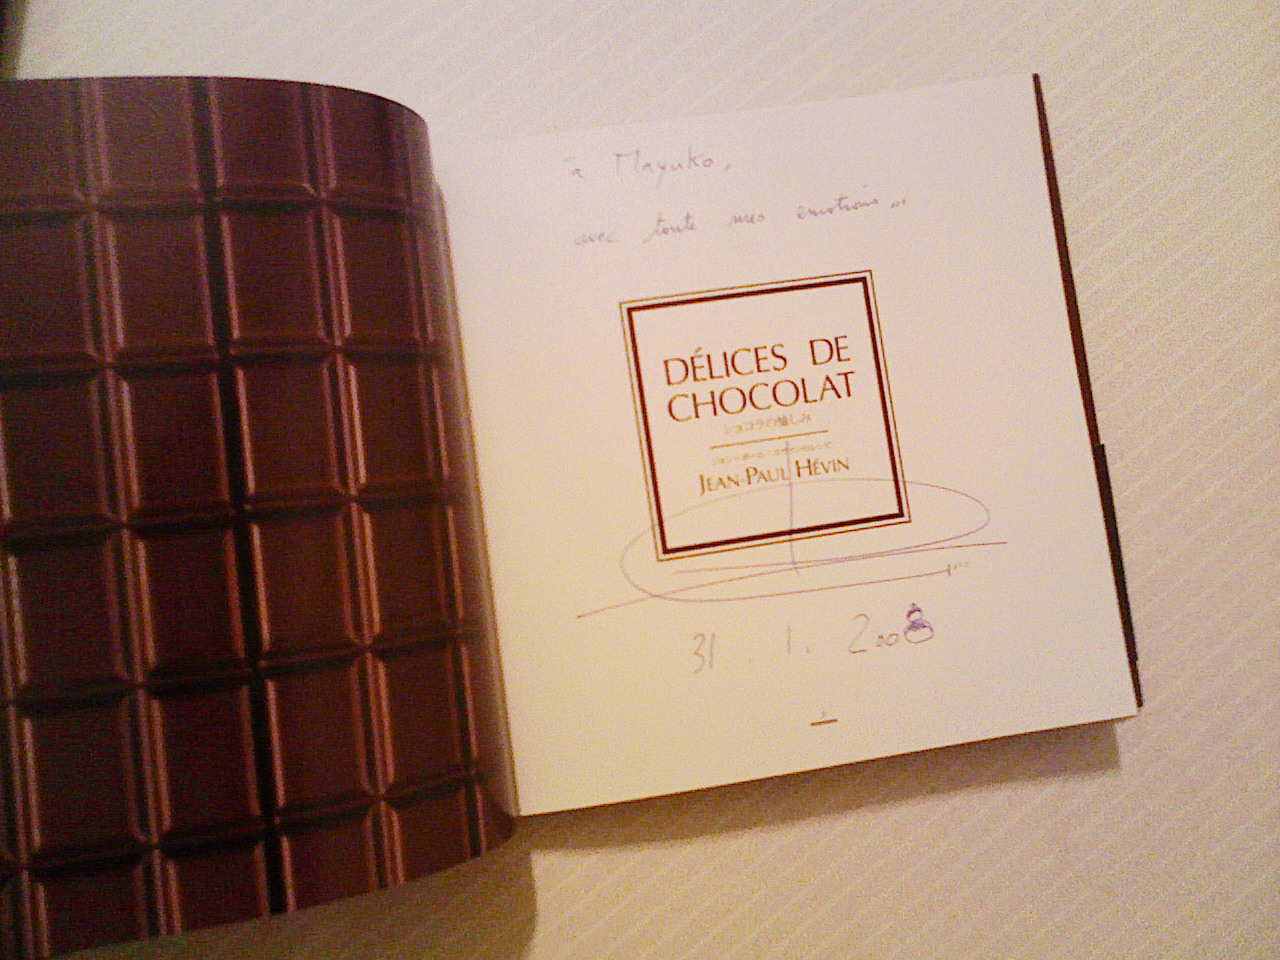 à Mayuko,
avec toute mes emotions...
DÉLICES DE
CHOCOLAT
ショコラの愉しみ
ジャン=ポール・エヴァン
JEAN-PAUL HÉVIN
31 1. 2008